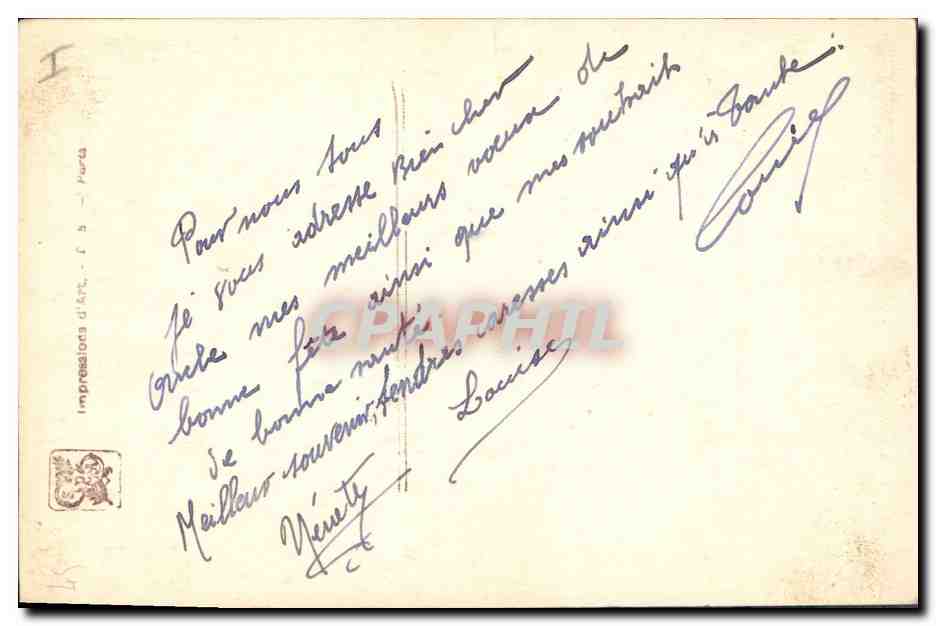 I
Pour nous tous
je vous adresse Bien cher
Oncle mes meilleurs voeux de
bonne fête ainsi que mes souhaits
de bonne santé
Louise
Meilleur souvenir, tendres caresses ainsi qu'à Tante.
Impressions d'Art. - - Paris
CPAPHIL